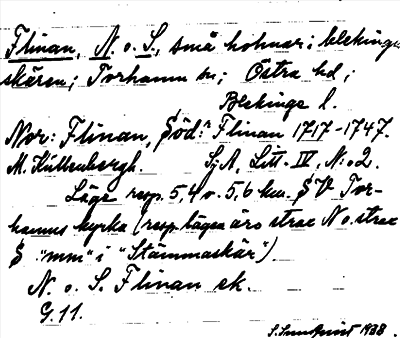 Flinan, N. o. S., små holmar i blekinge
skären; Torhamn sn; Östra hd;
Blekinge l.
Nor: Flinan, Söd:ª Flinan 1717-1747.
M. Küllenbergh. SjA, Litt. IV, N:o 2.
Läge resp. 5,4 o. 5,6 km. SV Tor-
hamns kyrka (resp. lägen äro strax N o. strax
S "mm" i "Stämmaskär").
N. o. S. Flinan sk.
G. 11.
1938.